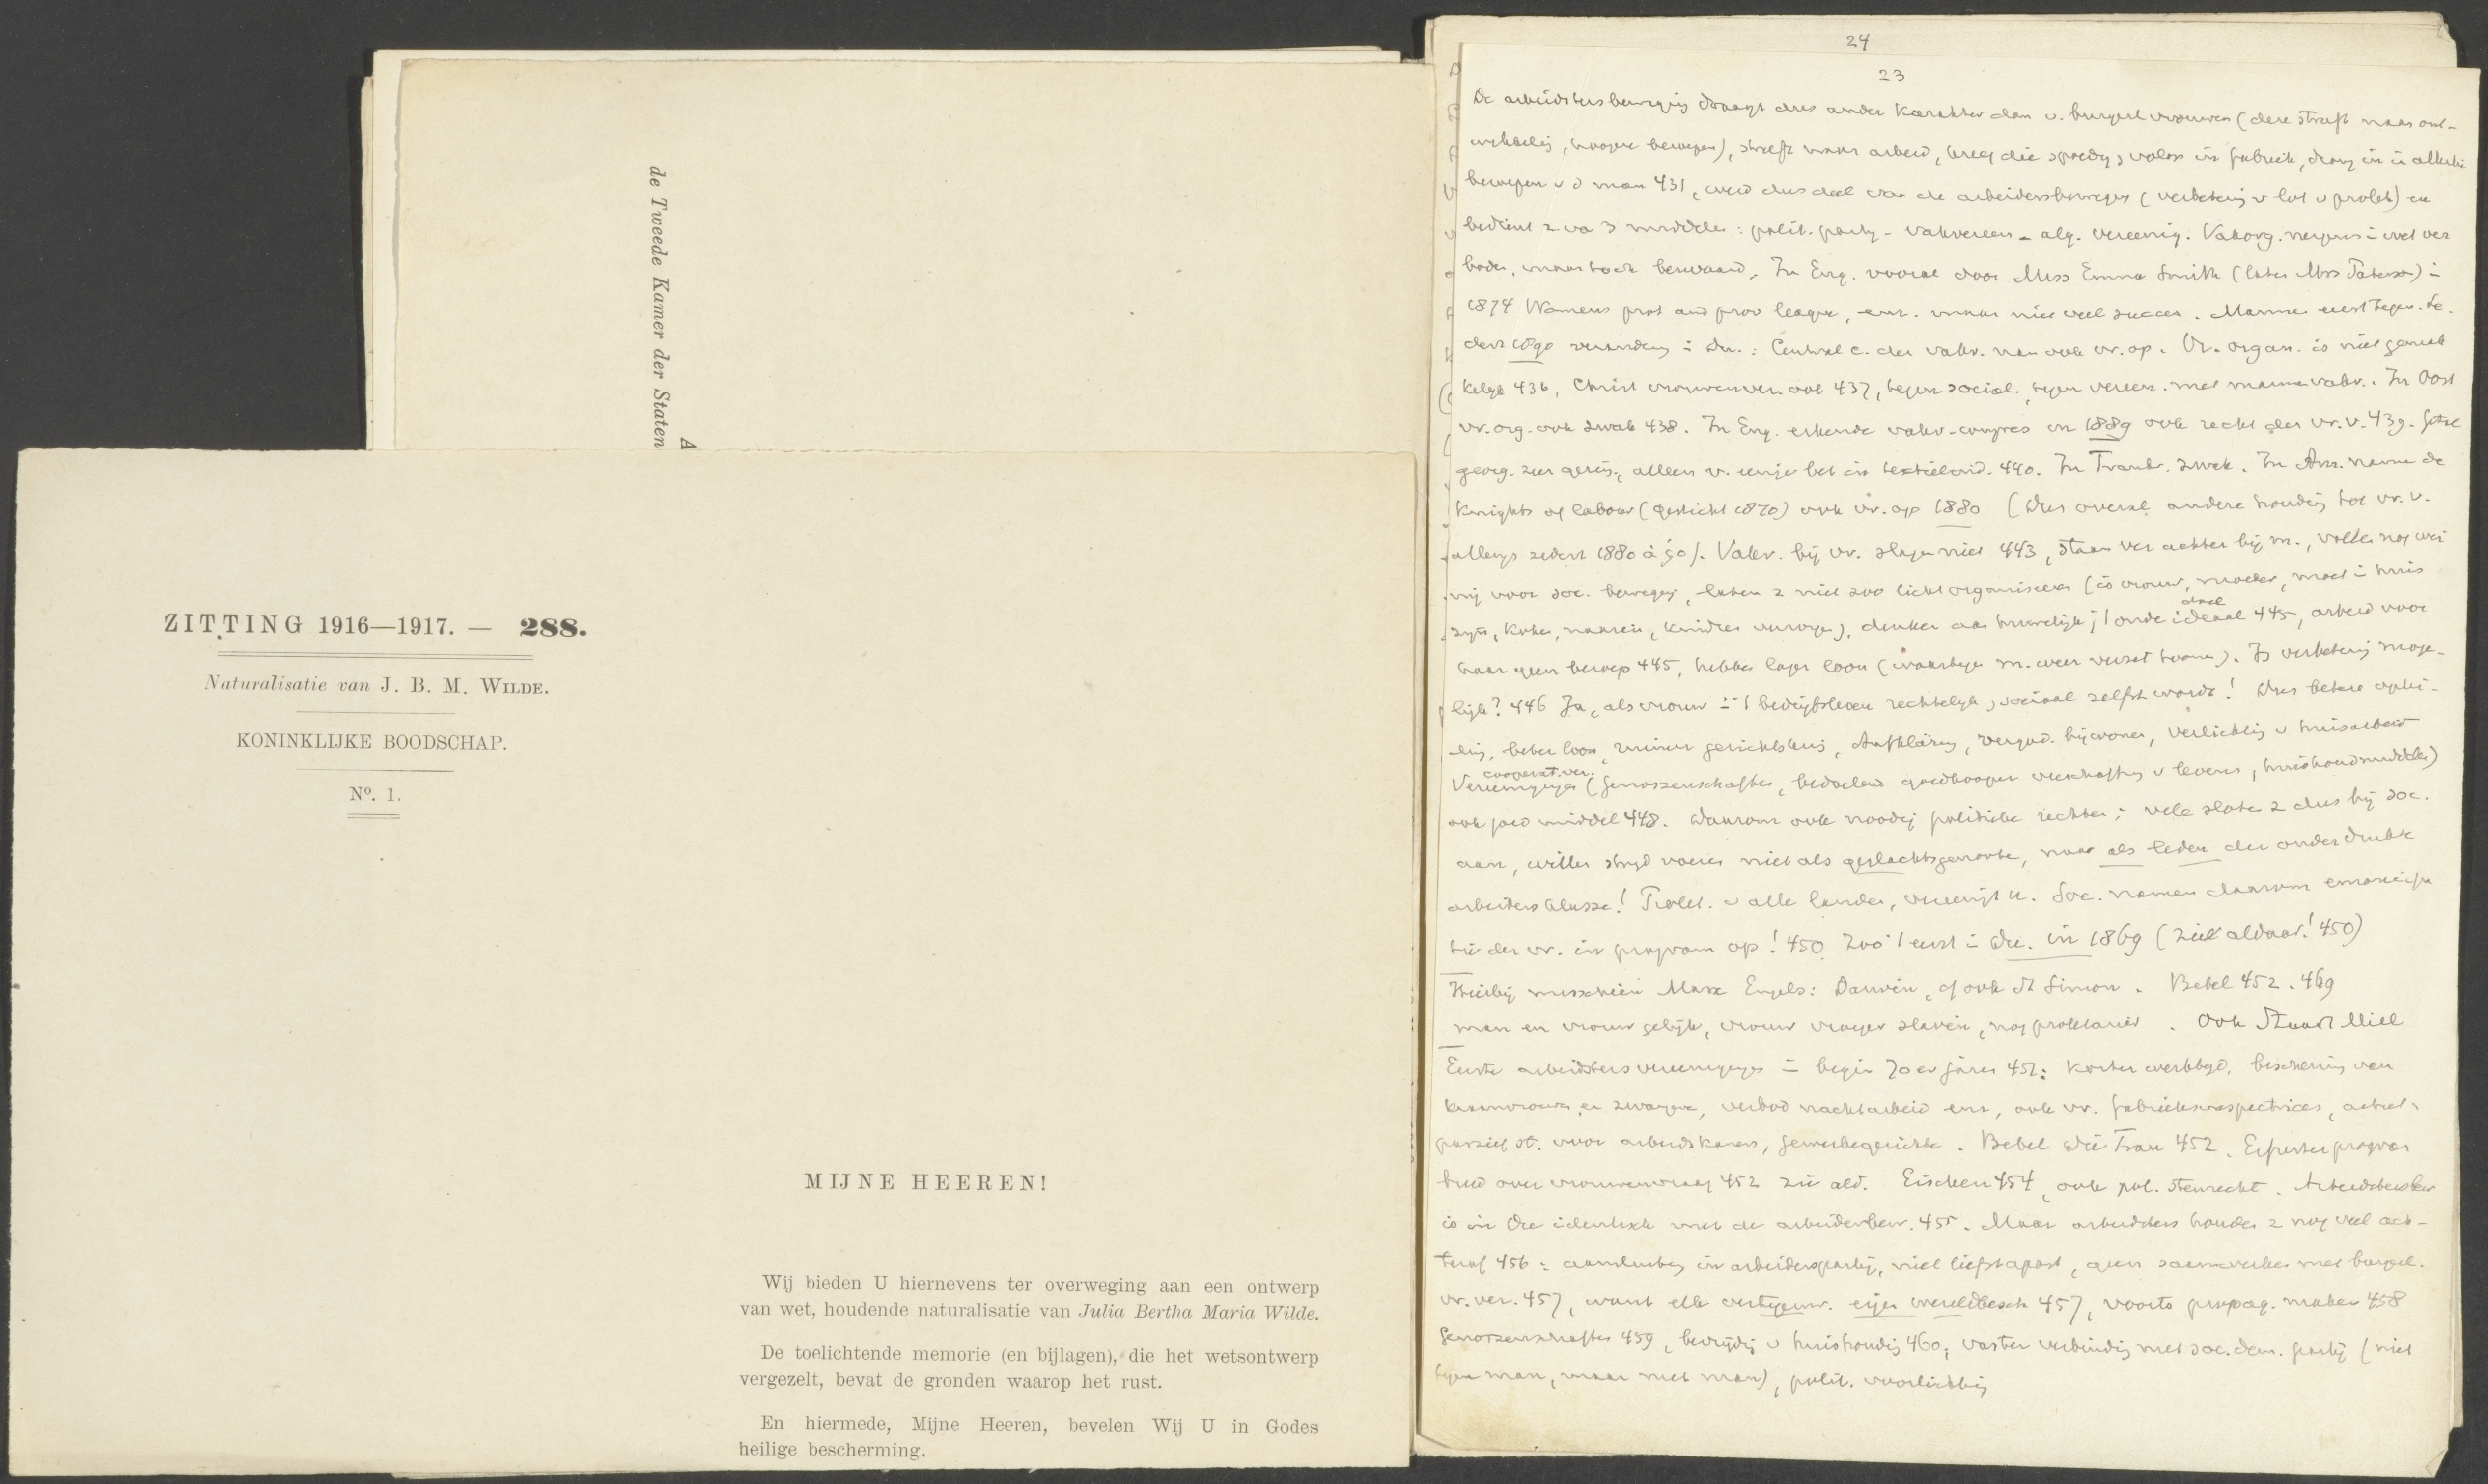 de Tweede Kamer der Staten
A
ZITTING 1916—1917. — 288.
Naturalisatie van J. B. M. WILDE.
KONINKLIJKE BOODSCHAP.
Nº. 1.
MIJNE HEEREN!
Wij bieden U hiernevens ter overweging aan een ontwerp
van wet, houdende naturalisatie van Julia Bertha Maria Wilde.
De toelichtende memorie (en bijlagen), die het wetsontwerp
vergezelt, bevat de gronden waarop het rust.
En hiermede, Mijne Heeren, bevelen Wij U in Godes
heilige bescherming.
24
23
De arbeidstersbeweging draagt dus ander karakter dan v. burgerl vrouwen (deze streeft naar ont-
wikkeling, hoogere beroepen), streeft naar arbeid, kreeg die spoedig, volop in fabriek, drong in in allerlei
beroepen v d man 431, werd dus deel van de arbeidersbeweging (verbetering v lot v prolet) en
bedient z. va 3 middelen: polit. partij - vakvereen - alg. vereenig. Vakorg. nergens in wet ver
boden, maar toch bezwaard. In Eng. vooral door Miss Emma Smith (later Mrs Paterson) in
1874 Womens prot and prov league, enz. maar niet veel succes. Mannen eerst tegen. Se
dert 1890 verandering in Du.: Central c. der vakv. nam ook vr. op. Vr. organ. is niet gemak
kelijk 436, Christ vrouwenver. ook 437, tegen social., tegen vereen. met mannenvakv. In Oost
vr. org. ook zwak 438. In Eng. erkende vakv-congres in 1889 ook recht der vr. v. 439. Getal
georg. zeer gering, alleen v. eenige bet in textielind. 440. In Frankr. zwak. In Am. namen de
Knights of labour (gesticht 1870) ook vr. op 1880 (dus overal andere houding tot vr. v.
allengs sedert 1880 à 90). Vakv. bij vr. slagen niet 443, staan ver achter bij m., voelen nog wei
nig voor soc. beweging, laten z niet zoo licht organiseeren (is vrouw, moeder, moet in huis
zijn, koken, naaien, kinderen verzorgen), denken aan huwelijk; 't oude ideaal 445, arbeid voor
haar geen beroep 445, hebben lager loon (waartegen m. weer verzet toonen). Is verbetering moge-
lijk? 446 Ja, als vrouw in 't bedrijfsleven rechtelijk, sociaal zelfst wordt! Dus betere oplei-
ding, beter loon, ruimer gezichtskring, Aufklärung, vergad. bijwonen, verlichting v huisarbeid
cooperat. ver.
Vereenigingen (Genossenschaften, bedoelend goedkooper verschaffing v levens, huishoudmiddelen)
ook goed middel 448. Daarom ook noodig politieke rechten; vele sloten z dus bij soc.
aan, willen strijd voeren niet als geslachtsgenoote, maar als leden der onderdrukte
arbeidersklasse! Prolet. v alle landen, vereenigt u. Soc. namen daarom emancipa
tie der vr. in program op! 450. Zoo 't eerst in Du. in 1869 (ziet aldaar! 450)
Hierbij misschien Marx Engels: Darwin, of ook St Simon. Bebel 452. 469
man en vrouw gelijk, vrouw vroeger slavin, nog proletariër. Ook Stuart Mill
Eerste arbeidstersvereenigingen in begin 70er jaren 451: korter werktijd, bescherming van
kraamvrouwen en zwangere, verbod nachtarbeid enz, ook vr. fabrieksinspectrices, actief,
passief st. voor arbeidskamers, Gewerbegerichte. Bebel die Frau 452. Erfurter program
breed over vrouwenvraag 452 zie ald. Eischen 454, ook pol. stemrecht. Arbeidstersbew
is in Du identisch met de arbeidersbew. 455. Maar arbeidsters houden z nog veel ach-
teraf 456: aansluiting in arbeiderspartij, niet liefst apart, geen saamwerken met burgerl.
vr. ver. 457, want elk vertegenw. eigen wereldbesch 457, voorts propag. maken 458
Genossenschaften 459, bevrijding v huishouding 460, vaster verbinding met soc. dem. partij (niet
tegen man, maar met man), polit. voorlichting